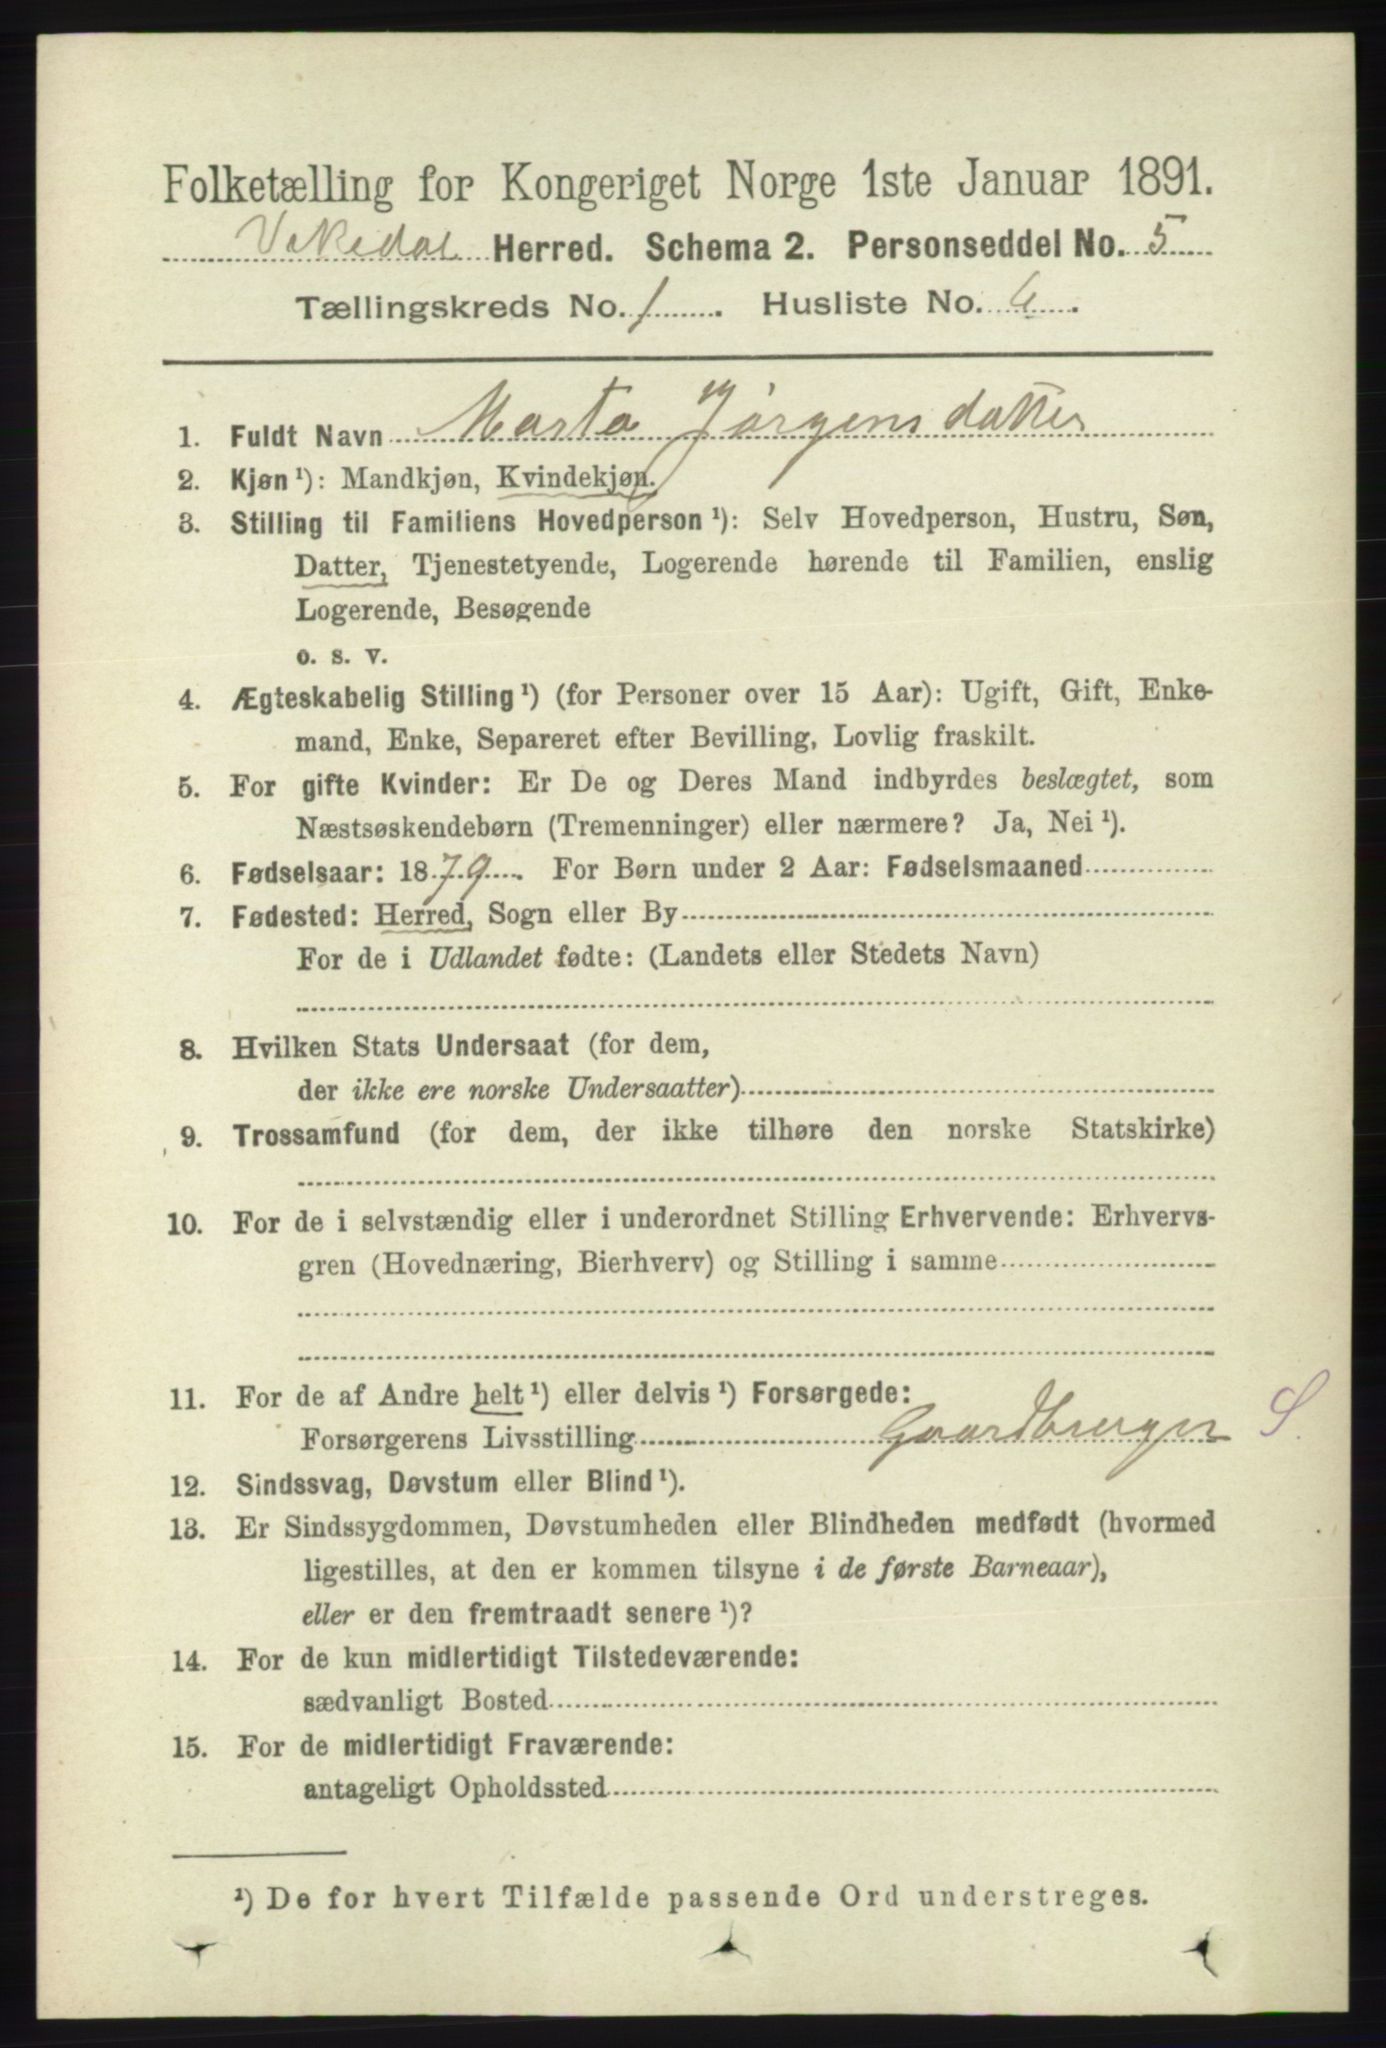 Folketælling for Kongeriget Norge 1ste Januar 1891.
Vikedal Herred. Schema 2. Personseddel No. 5
Tællingskreds No. 1. Husliste No. 6.
1. Fuldt Navn Marta Jörgensdatter
2. Kjøn ¹): Mandkjøn, Kvindekjøn.
3. Stilling til Familiens Hovedperson ¹): Selv Hovedperson, Hustru, Søn,
Datter, Tjenestetyende, Logerende hørende til Familien, enslig
Logerende, Besøgende
o. s. v.
4. Ægteskabelig Stilling ¹) (for Personer over 15 Aar): Ugift, Gift, Enke-
mand, Enke, Separeret efter Bevilling, Lovlig fraskilt.
5. For gifte Kvinder: Er De og Deres Mand indbyrdes beslægtet, som
Næstsøskendebørn (Tremenninger) eller nærmere? Ja, Nei ¹).
6. Fødselsaar: 1879. For Børn under 2 Aar: Fødselsmaaned
7. Fødested: Herred, Sogn eller By
For de i Udlandet fødte: (Landets eller Stedets Navn)
8. Hvilken Stats Undersaat (for dem,
der ikke ere norske Undersaatter)
9. Trossamfund (for dem, der ikke tilhøre den norske Statskirke)
10. For de i selvstændig eller i underordnet Stilling Erhvervende: Erhvervs-
gren (Hovednæring, Bierhverv) og Stilling i samme
11. For de af Andre helt ¹) eller delvis ¹) Forsørgede:
Forsørgerens Livsstilling Gaardbruger S.
12. Sindssvag, Døvstum eller Blind ¹).
13. Er Sindssygdommen, Døvstumheden eller Blindheden medfødt (hvormed
ligestilles, at den er kommen tilsyne i de første Barneaar),
eller er den fremtraadt senere ¹)?
14. For de kun midlertidigt Tilstedeværende:
sædvanligt Bosted
15. For de midlertidigt Fraværende:
antageligt Opholdssted
¹) De for hvert Tilfælde passende Ord understreges.